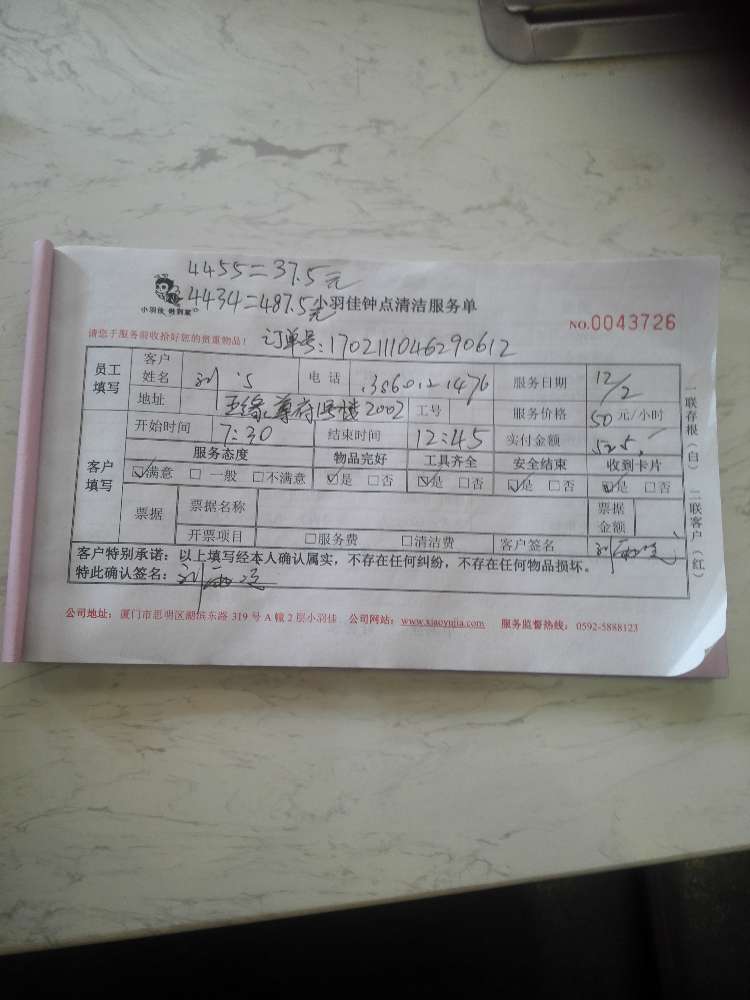 4455=37.5元
4434=487.5元
小羽佳 做到家
小羽佳钟点清洁服务单
NO.0043726
请您于服务前收拾好您的贵重物品！ 订单号:1702111046290612
员工填写 客户姓名 刘 电话 服务日期 12/2
地址 尊府 2002 工号 服务价格 50 元/小时
客户填写 开始时间 7:30 结束时间 12:45 实付金额 525.
服务态度 物品完好 工具齐全 安全结束 收到卡片
☑满意 □一般 □不满意 ☑是 □否 ☑是 □否 ☑是 □否 ☑是 □否
票据 票据名称 票据金额
开票项目 □服务费 □清洁费 客户签名 刘
客户特别承诺：以上填写经本人确认属实，不存在任何纠纷，不存在任何物品损坏。
特此确认签名：刘
一联存根（白） 二联客户（红）
公司地址：厦门市思明区湖滨东路 319 号 A 幢 2 层小羽佳 公司网站：www.xiaoyujia.com 服务监督热线：0592-5888123